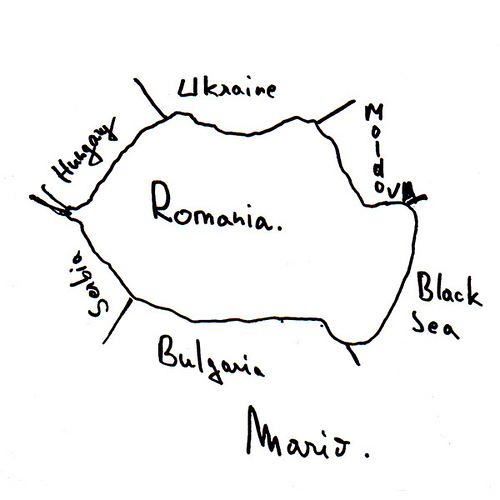 Ukraine
Moldova
Hungary
Romania.
Serbia
Black
Sea
Bulgaria
Mario.